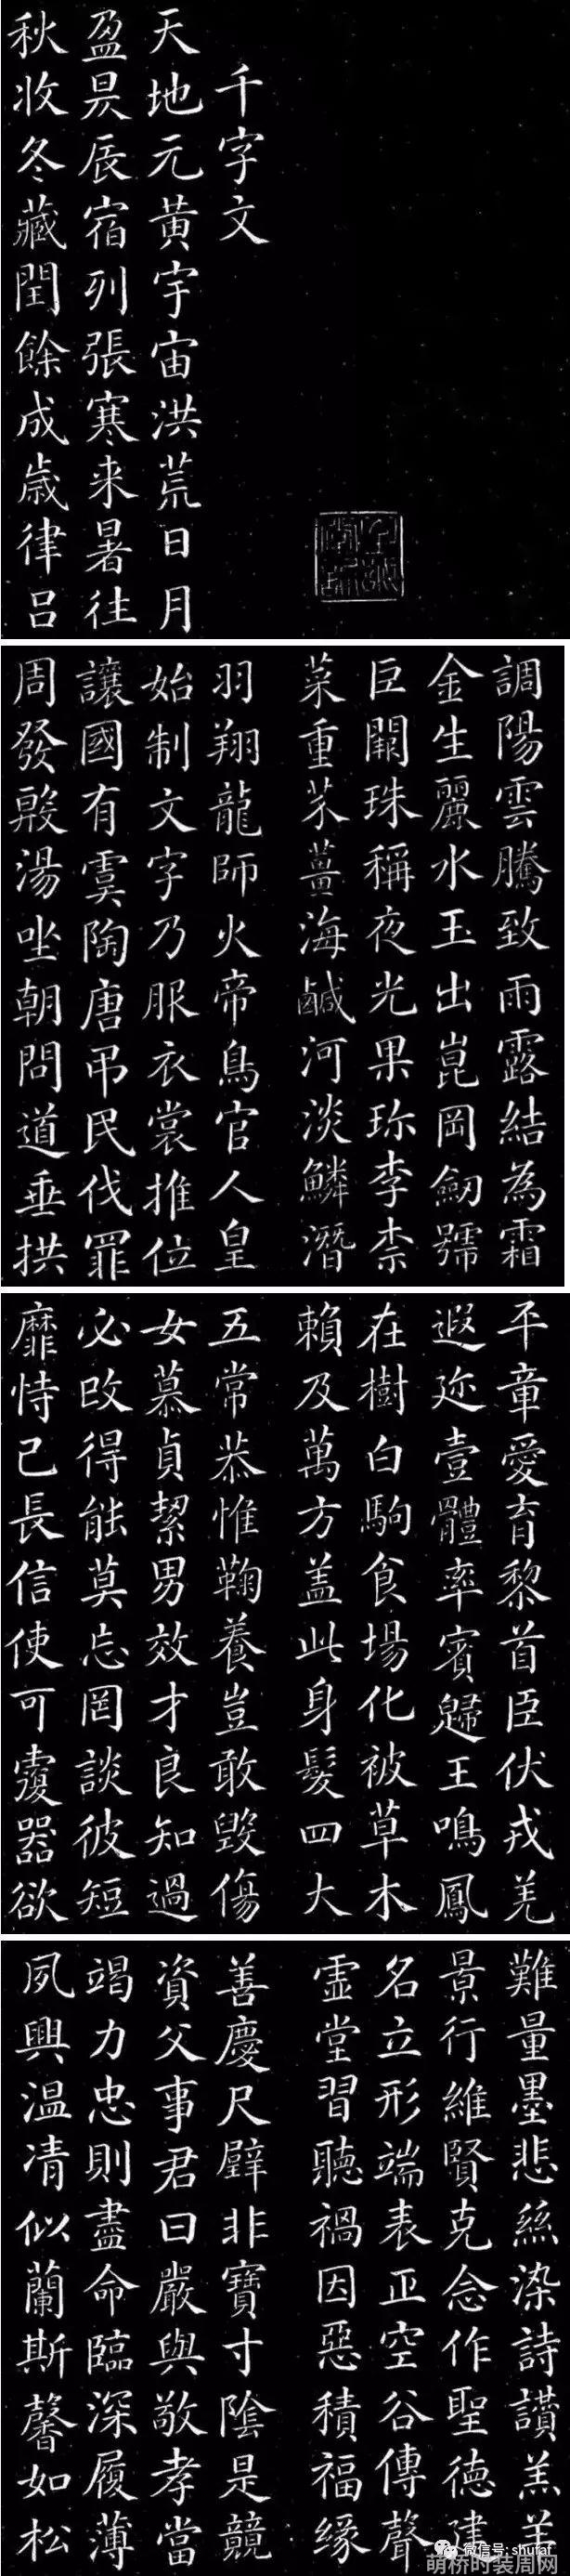 千字文
天地元黄宇宙洪荒日月
盈昃辰宿列張寒来暑往
秋收冬藏閏餘成歲律呂
調陽雲騰致雨露結為霜
金生麗水玉出崑岡劒號
巨闕珠稱夜光果珎李柰
菜重芥薑海鹹河淡鱗潛
羽翔龍師火帝鳥官人皇
始制文字乃服衣裳推位
讓國有虞陶唐弔民伐罪
周發殷湯坐朝問道垂拱
平章愛育黎首臣伏戎羌
遐迩壹體率賓歸王鳴鳳
在樹白駒食場化被草木
賴及萬方盖此身髮四大
五常恭惟鞠養豈敢毀傷
女慕貞絜男效才良知過
必改得能莫忘罔談彼短
靡恃己長信使可覆器欲
難量墨悲絲染詩讃羔羊
景行維賢克念作聖德建
名立形端表正空谷傳聲
虛堂習聽禍因惡積福緣
善慶尺璧非寶寸陰是競
資父事君曰嚴與敬孝當
竭力忠則盡命臨深履薄
夙興温凊似蘭斯馨如松
微信号: shufaf
萌桥时装周网